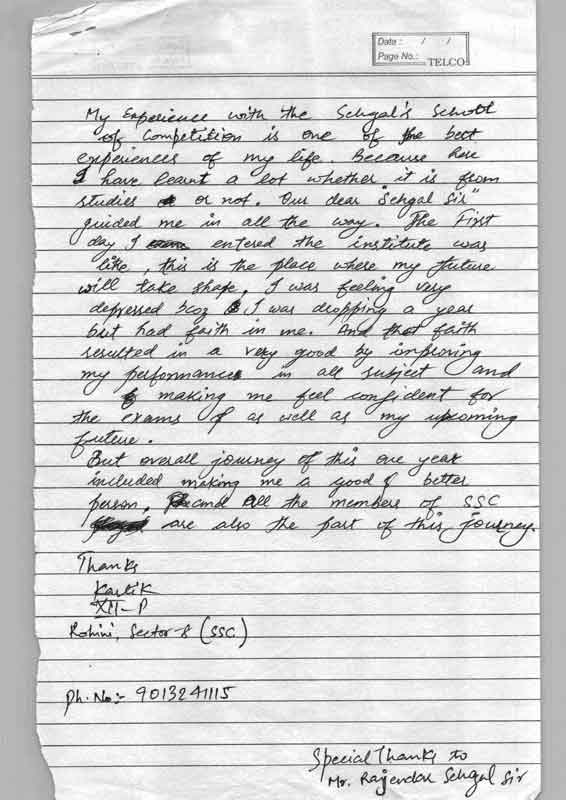 Date : / /
Page No.:
TELCO
My Experience with the Sehgal's School
of Competition is one of the best
experiences of my life. Because here
I have learnt a lot whether it is from
studies or not. Our dear "Sehgal Sir"
guided me in all the way. The First
day I entered the institute was
like, this is the place where my future
will take shape, I was feeling very
depressed bcoz I was dropping a year
but had faith in me. And that faith
resulted in a very good by improving
my performance in all subject and
making me feel confident for
the exams as well as my upcoming
future.
But overall journey of this one year
included making me a good & better
person, and all the members of SSC
are also the part of this journey.
Thanks
Kartik
XII-P
Rohini, Sector-8 (SSC)
Ph. No:- 9013241115
Special Thanks to
Mr. Rajendar Sehgal Sir